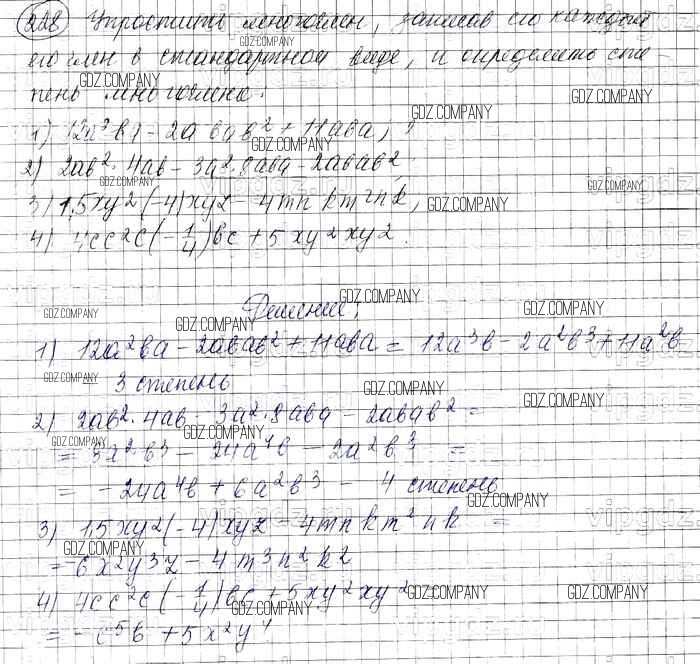 228 Упростить многочлен, записав его каждый
его член в стандартном виде, и определить сте-
пень многочлена:
1) 12a³b) - 2abab² + 11aba;
2) 2ab²·4ab - 3a²·8aba - 2abab²;
3) 1,5xy²(-4)xyz - 4mnkm²nk;
4) 4cc²c(-1/4)bc + 5xy²xy².
Решение:
1) 12a²ba - 2abab² + 11aba = 12a³b - 2a²b³ + 11a²b
- 3 степень
2) 2ab²·4ab - 3a²·8aba - 2abab² =
= 8a²b³ - 24a⁴b - 2a²b³ =
= -24a⁴b + 6a²b³ - 4 степень
3) 1,5xy²(-4)xyz - 4mnkm²nk =
= -6x²y³z - 4m³n²k²
4) 4cc²c(-1/4)bc + 5xy²xy² =
= -c⁵b + 5x²y⁴
GDZ.COMPANY
vipgdz